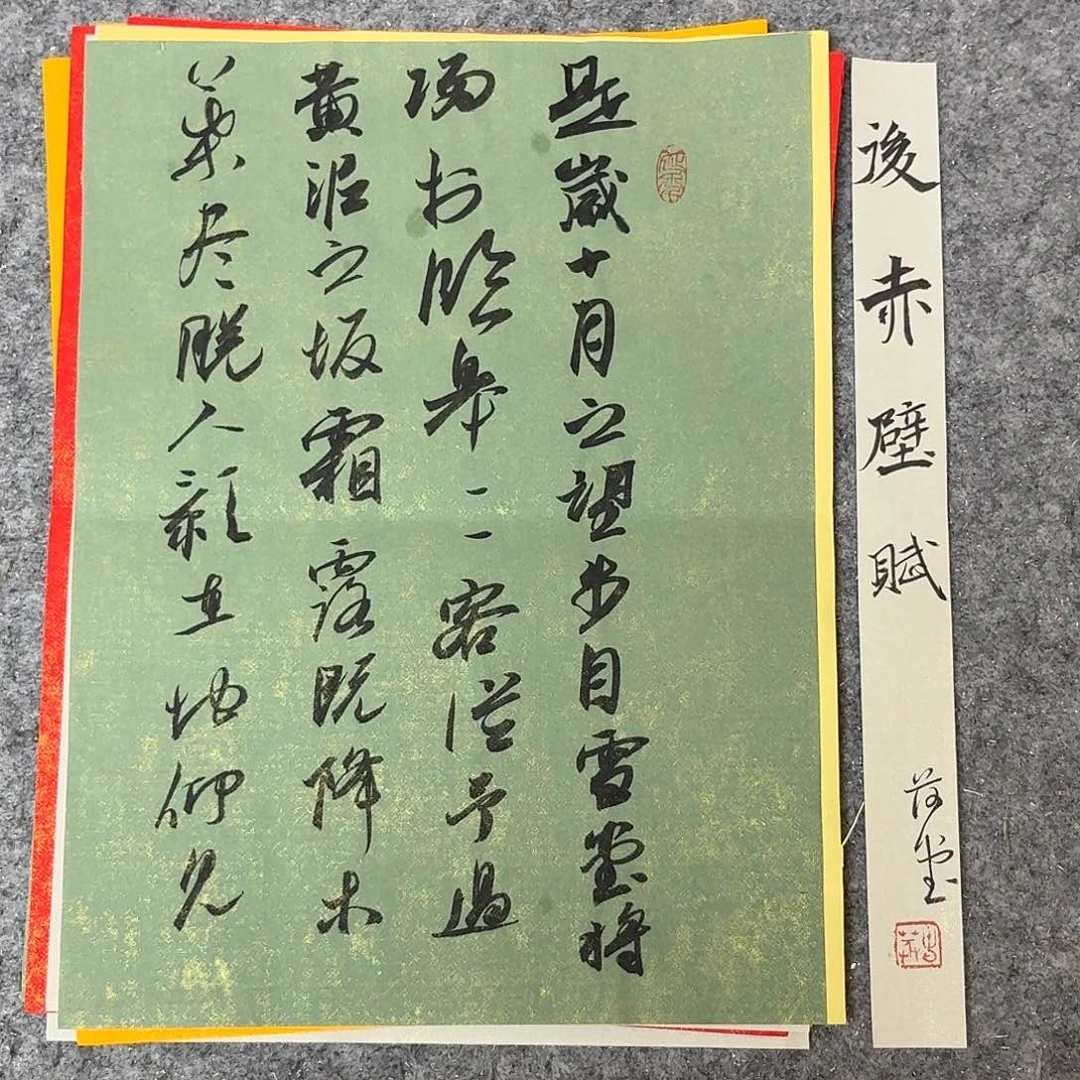 後赤壁賦
荷堂
是歲十月之望步自雪堂将
歸於臨皋二客從予過
黄泥之坂霜露既降木
葉尽脱人影在地仰見